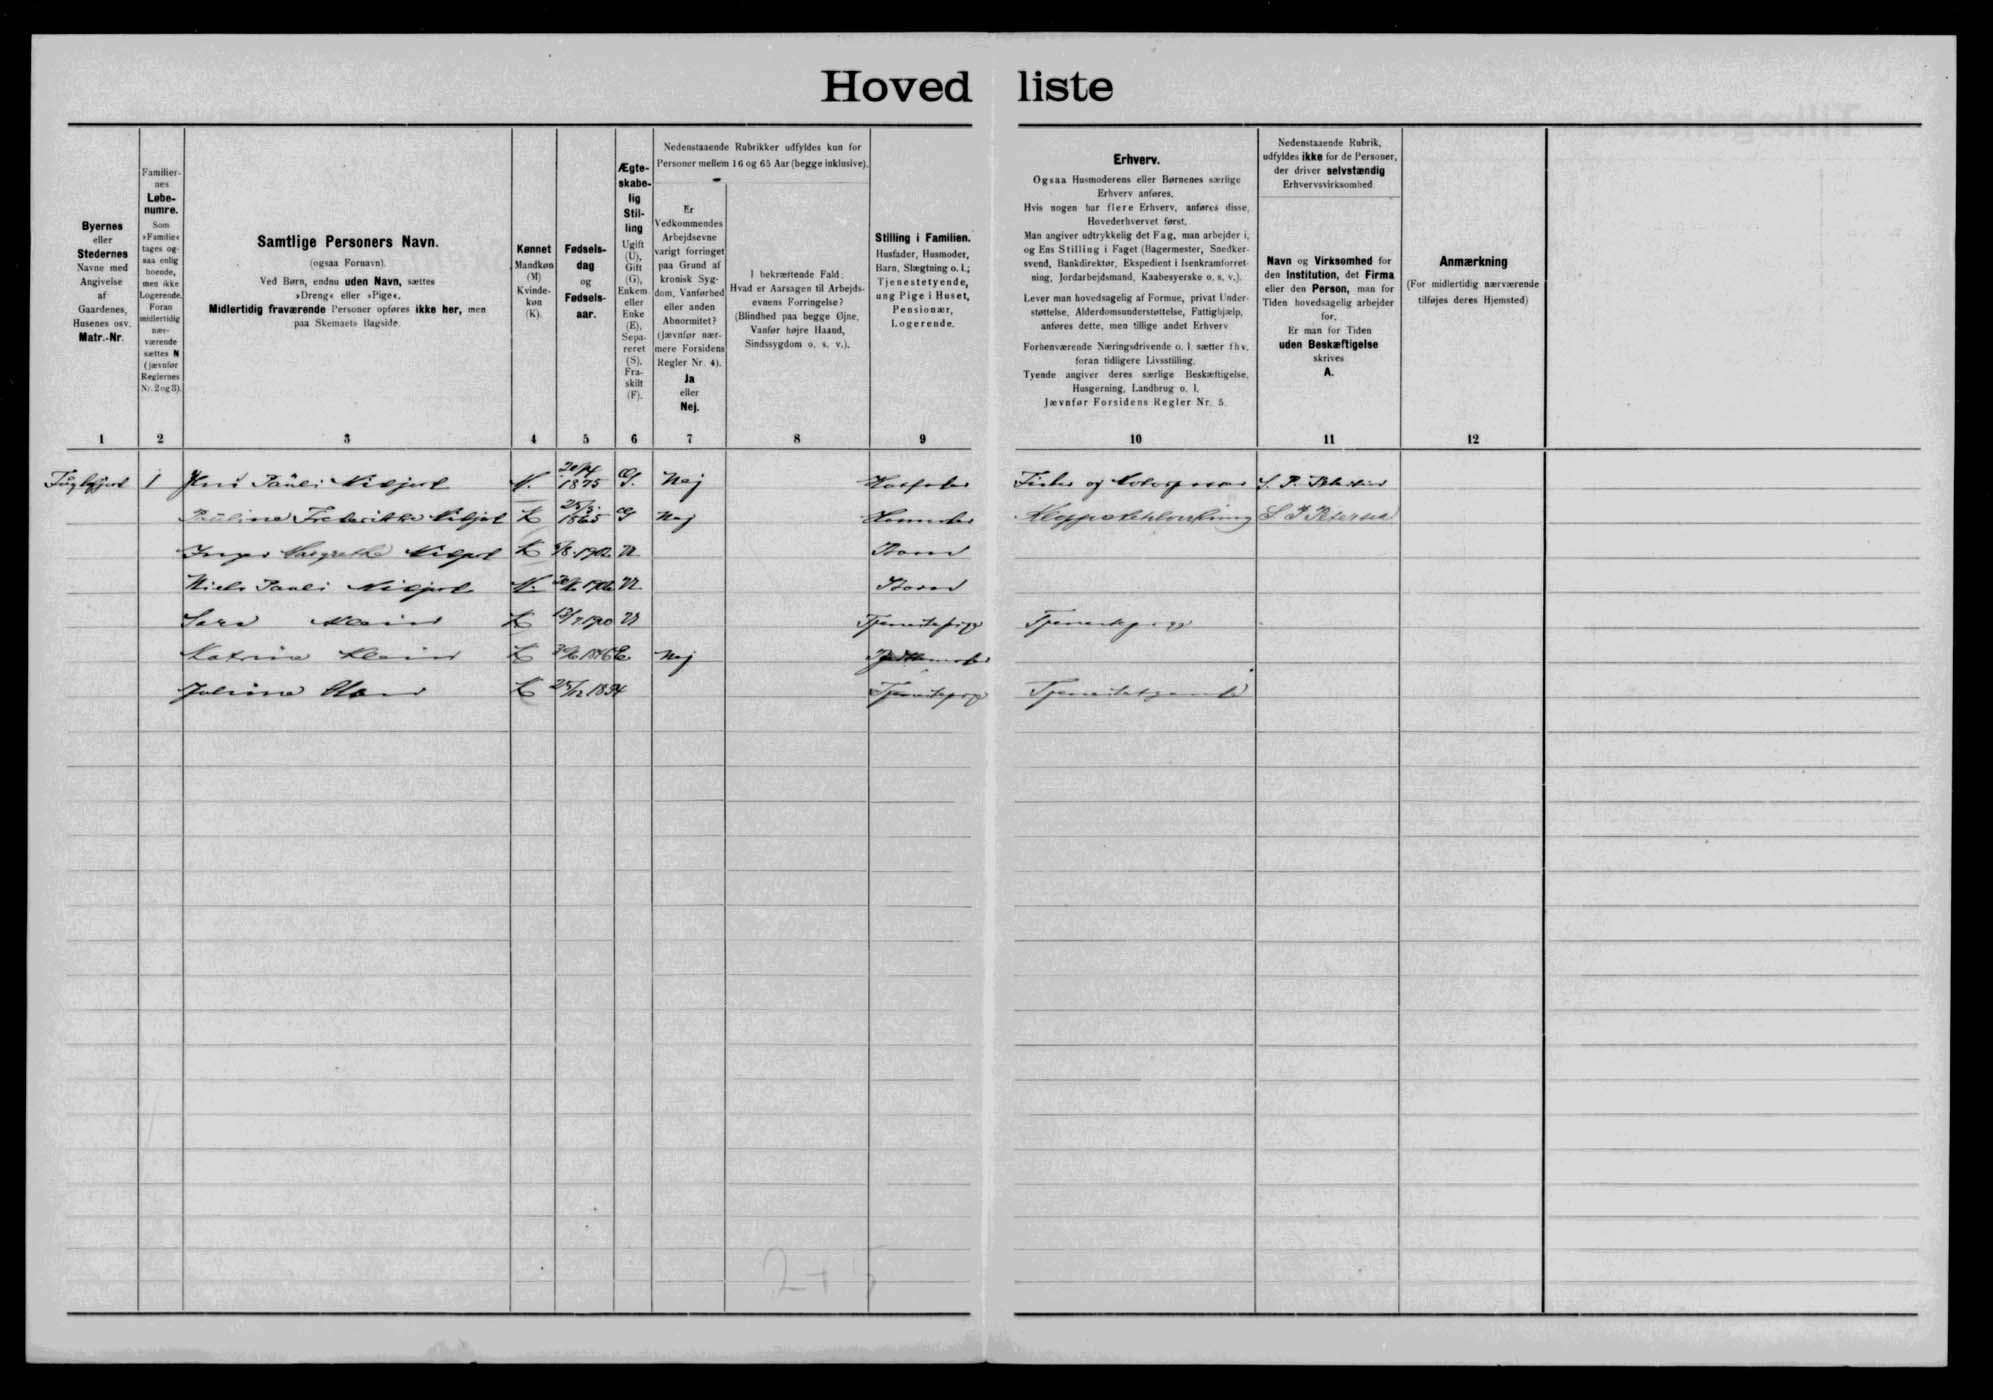 Hovedliste
Byernes
eller
Stedernes
Navne med
Angivelse
af
Gaardenes,
Husenes osv.
Matr.-Nr.
1
Familier-
nes
Løbe-
numre.
Som
»Familie«
tages og-
saa enlig
boende,
men ikke
Logerende.
Foran
midlertidig
nær-
værende
sættes N
(jævnfør
Reglernes
Nr. 2 og 3).
2
Samtlige Personers Navn.
(ogsaa Fornavn).
Ved Børn, endnu uden Navn, sættes
»Dreng« eller »Pige«.
Midlertidig fraværende Personer opføres ikke her, men
paa Skemaets Bagside.
3
Kønnet
Mandkøn
(M)
Kvinde-
køn
(K).
4
Fødsels-
dag
og
Fødsels-
aar.
5
Ægte-
skabe-
lig
Stil-
ling
Ugift
(U),
Gift
(G),
Enkem.
eller
Enke
(E),
Sepa-
reret
(S),
Fra-
skilt
(F).
6
Nedenstaaende Rubrikker udfyldes kun for
Personer mellem 16 og 65 Aar (begge inklusive).
Er
Vedkommendes
Arbejdsevne
varigt forringet
paa Grund af
kronisk Syg-
dom, Vanførhed
eller anden
Abnormitet?
(Jævnfør nær-
mere Forsidens
Regler Nr. 4).
Ja
eller
Nej.
7
I bekræftende Fald:
Hvad er Aarsagen til Arbejds-
evnens Forringelse?
(Blindhed paa begge Øjne,
Vanfør højre Haand,
Sindssygdom o. s. v.).
8
Stilling i Familien.
Husfader, Husmoder,
Barn, Slægtning o. l.;
Tjenestetyende,
ung Pige i Huset,
Pensionær,
Logerende.
9
Erhverv.
Ogsaa Husmoderens eller Børnenes særlige
Erhverv anføres.
Hvis nogen har flere Erhverv, anføres disse,
Hovederhvervet først.
Man angiver udtrykkelig det Fag, man arbejder i,
og Ens Stilling i Faget (Bagermester, Snedker-
svend, Bankdirektør, Ekspedient i Isenkramforret-
ning, Jordarbejdsmand, Kaabesyerske o. s. v.).
Lever man hovedsagelig af Formue, privat Under-
støttelse, Alderdomsunderstøttelse, Fattighjælp,
anføres dette, men tillige andet Erhverv
Forhenværende Næringsdrivende o. l. sætter fhv.
foran tidligere Livsstilling.
Tyende angiver deres særlige Beskæftigelse,
Husgerning, Landbrug o. l.
Jævnfør Forsidens Regler Nr. 5.
10
Nedenstaaende Rubrik,
udfyldes ikke for de Personer,
der driver selvstændig
Erhvervsvirksomhed
Navn og Virksomhed for
den Institution, det Firma
eller den Person, man for
Tiden hovedsagelig arbejder
for.
Er man for Tiden
uden Beskæftigelse
skrives
A.
11
Anmærkning
(For midlertidig nærværende
tilføjes deres Hjemsted)
12
Fuglefjord 1 Pauli M. 20/4 1875 G. Nej Husfader Fisker og
Pauline Frederikke K 1865 G Nej Husmoder S P Petersen
Inger Margrethe K U Barn
Niels Pauli M. U Barn
Sara K U Tjenestepige Tjenestepige
Katrina K E Nej
Juliane K 25/12 1894 Tjenestepige
2+5